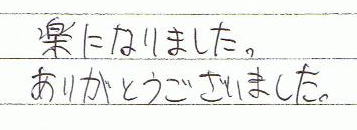 楽になりました。
ありがとうございました。